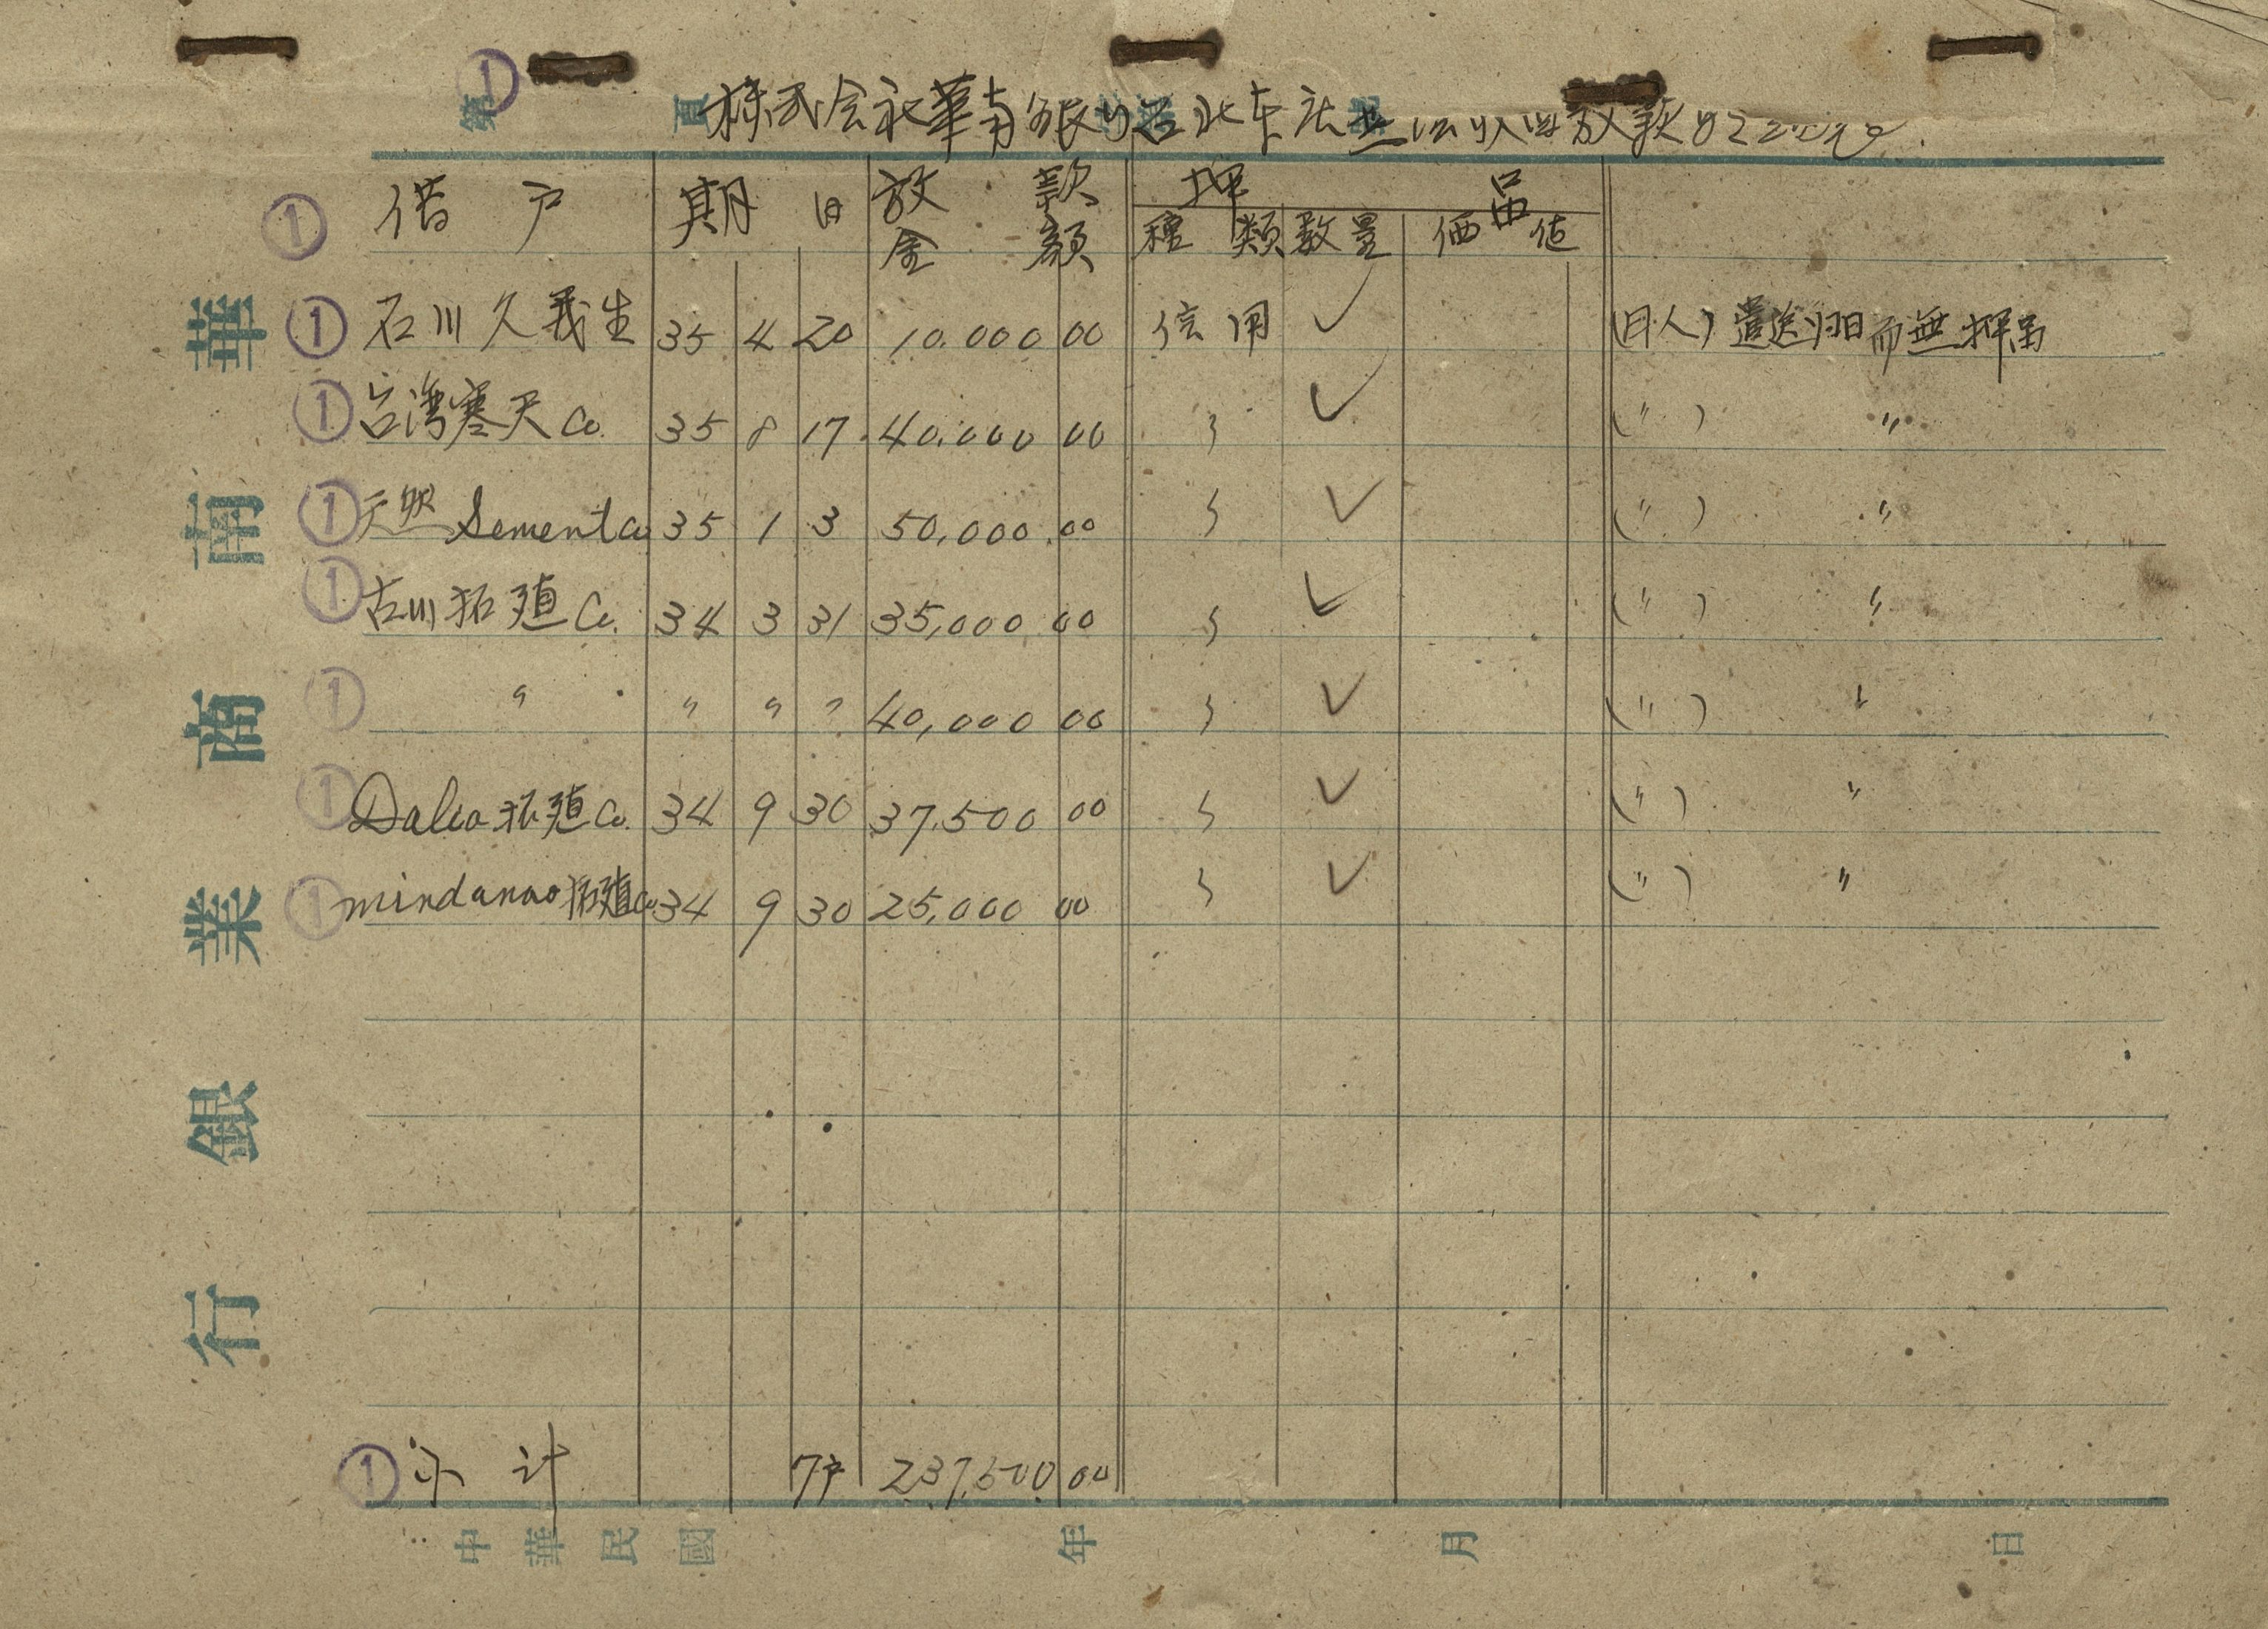 ① 第 頁
株式会社華南銀行台北本店無法收回放款
① 借戶 期日 放款金額 押品
種類 数量 価値
① 石川久義生 35 4 20 10.000 00 信用 ✓ (日人) 遣送归日而無押品
① 台湾寒天Co. 35 8 17 40.000 00 〃 ✓ (〃) 〃
① 天然SementCo 35 1 3 50,000.00 〃 ✓ (〃) 〃
① 古川拓殖Co. 34 3 31 35,000 00 〃 ✓ (〃) 〃
① 〃 〃 〃 〃 40,000 00 〃 ✓ (〃) 〃
① 拓殖Co. 34 9 30 37.500 00 〃 ✓ (〃) 〃
① mindanao拓殖Co 34 9 30 25,000 00 〃 ✓ (〃) 〃
① 小計 7戶 237,500.00
中華民國 年 月 日
華南商業銀行